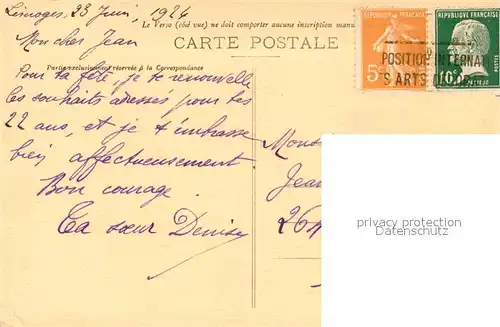 Limoges, 23 Juin, 1924
Le Verso (côté vue) ne doit comporter aucune inscription manu
Mon cher Jean
CARTE POSTALE
Partie exclusivement réservée à la Correspondance
Pour ta fête, je te renouvelle
les souhaits adressés pour tes
22 ans, et je t'embrasse
bien affectueusement
Bon courage
Ta sœur Denise
RÉPUBLIQUE FRANÇAISE
5
RÉPUBLIQUE FRANÇAISE
POSTES
10c
PASTEUR
POSITION INTERNAT
S ARTS D
Mons
Jean
264
privacy protection
Datenschutz